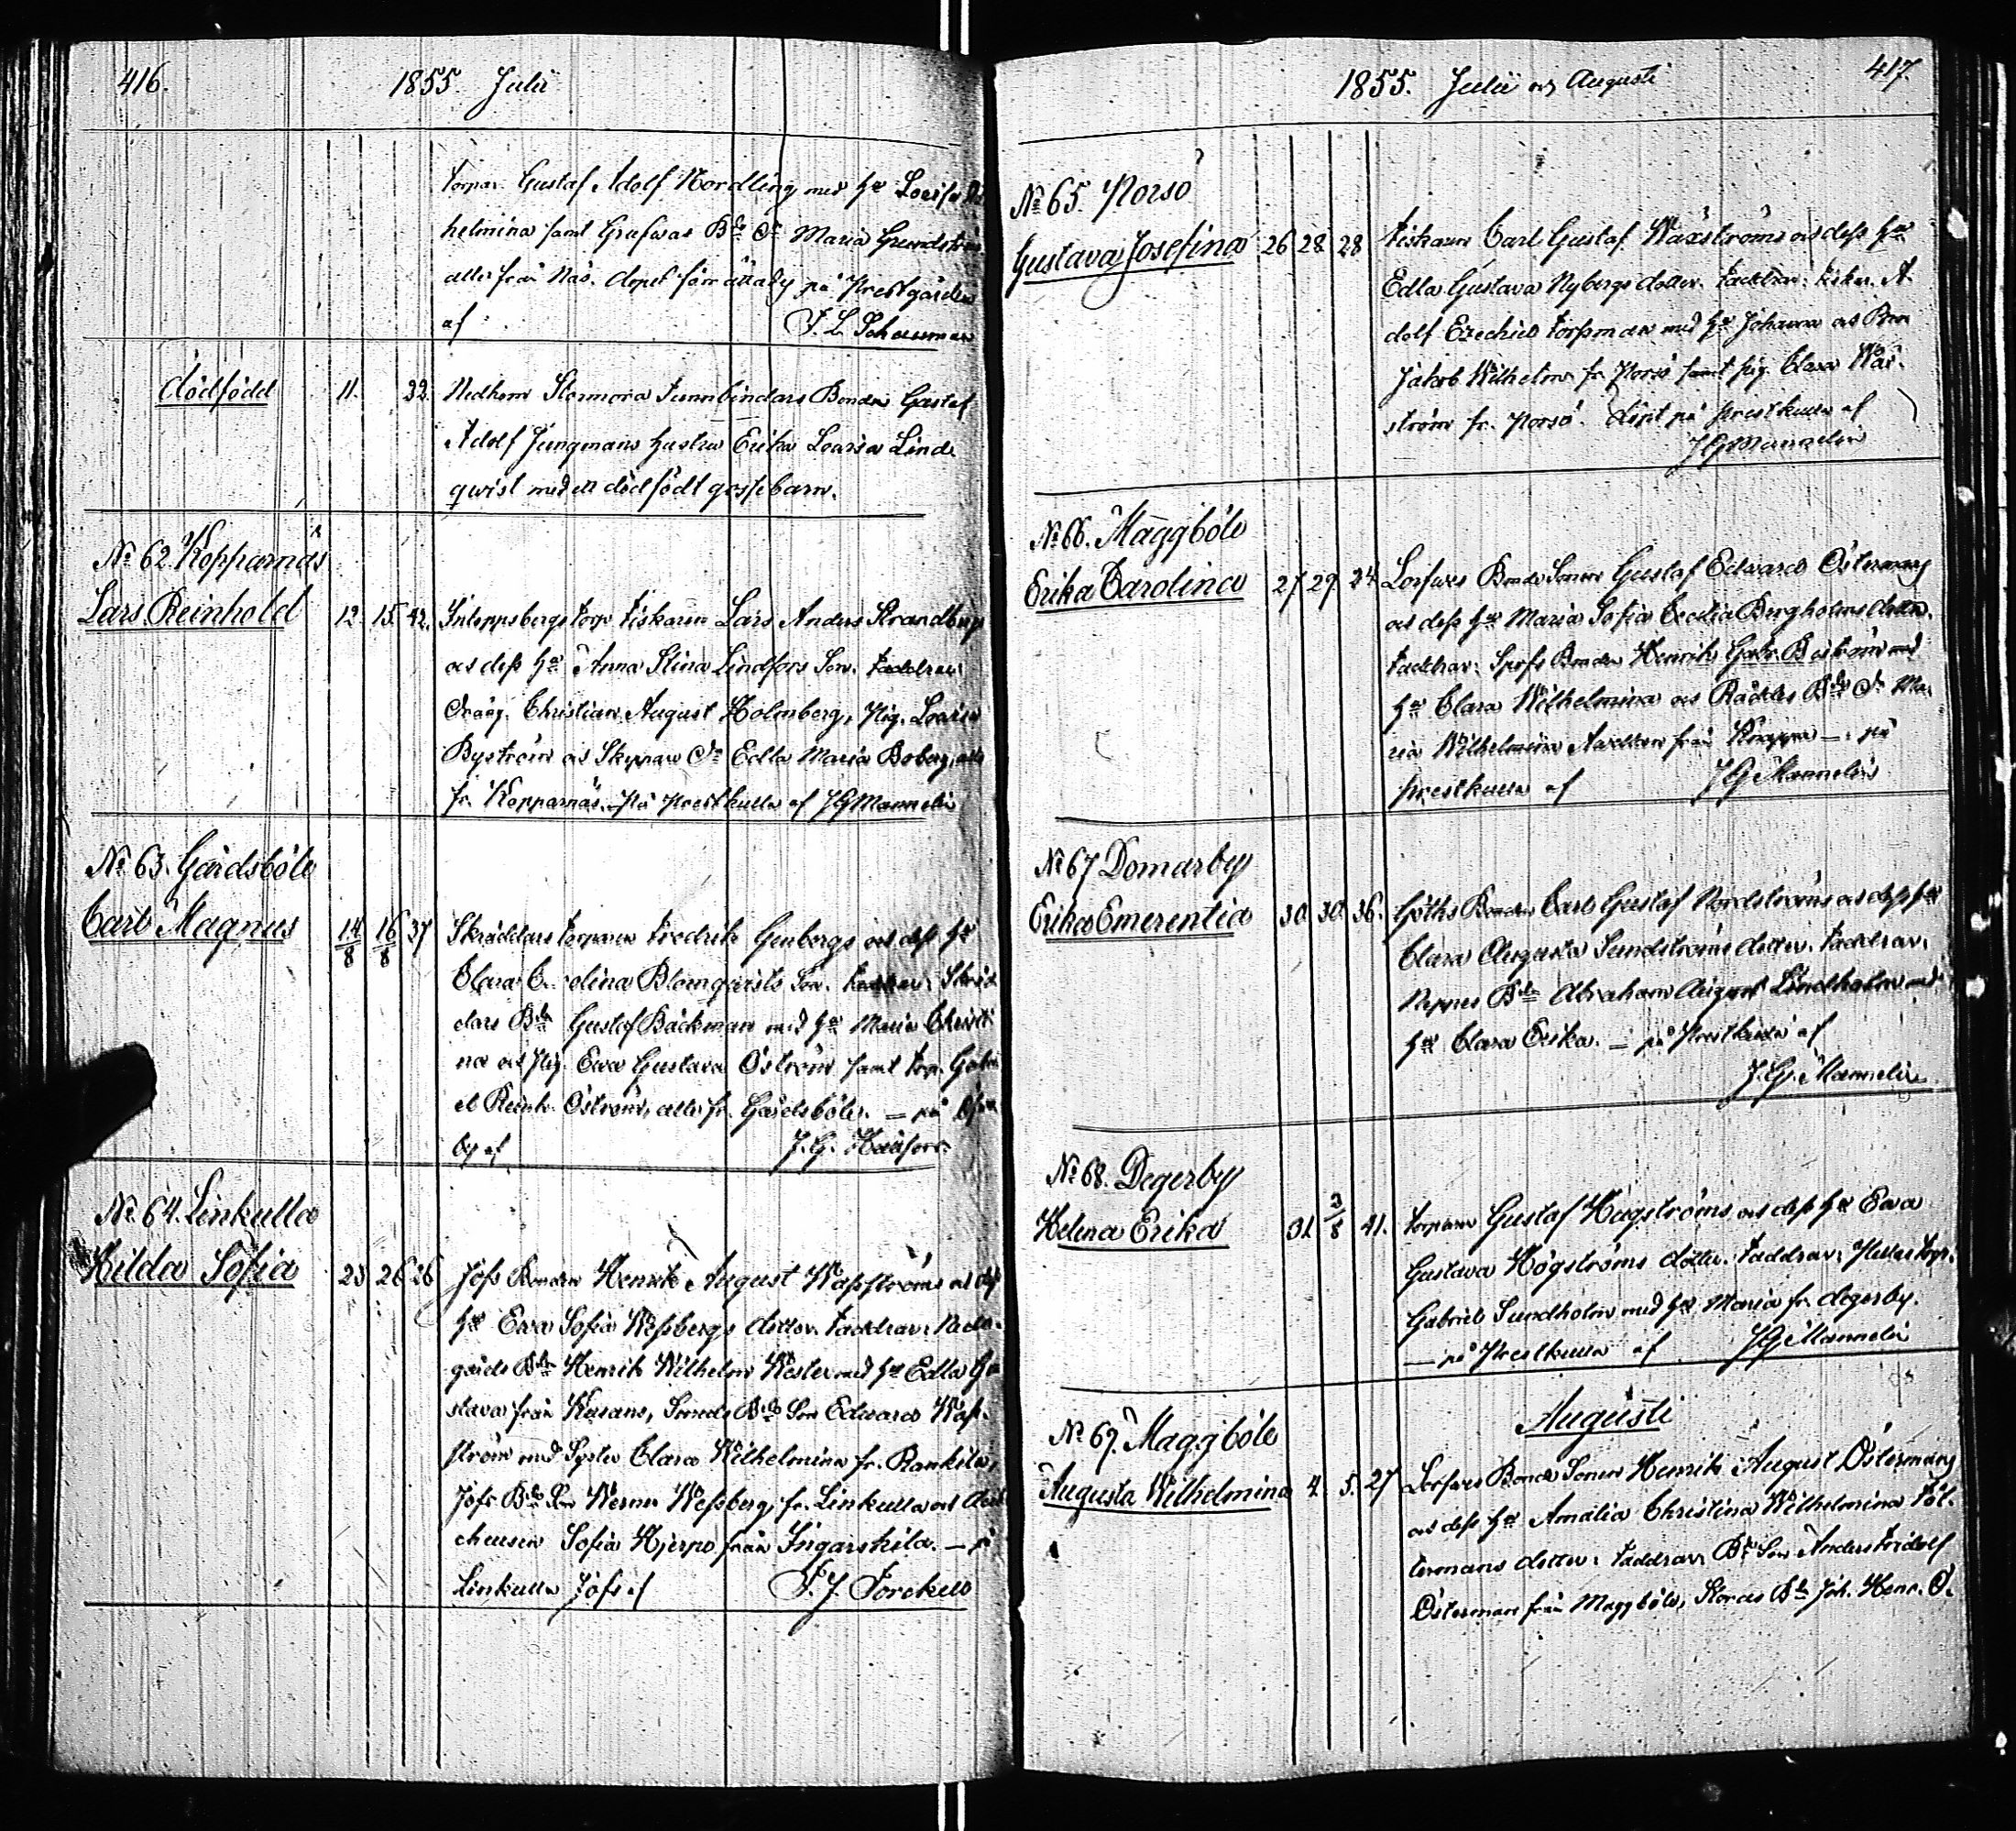 416.
1855 Julii
torpar. Gustaf Adolf Nordling med hu Lovisa
helmina samt Grefvas Bde Dr Maria Grundström
alla från Näs. Dopet förrättady på Prestgården
af F. L. Schauman
dödfödd 11. 32. Nedhem Stormora Tunnbindars Bonden Gustaf
Adolf Jungmans hustru Erika Lovisa Lind
qwist med ett dödfödt gossebarn.
No 62 Kopparnäs
Lars Reinhold 12. 15. 42. torp Fiskaren Lars Anders Strandbergs
och dess hu Anna Stina Lindfors Son. Faddrar:
Dräng. Christian August Holmberg, Pig. Lovisa
Byström och Skeppare Dr Edla Maria Boberg, alla
fr. Kopparnäs. på Prestkulla af J G Mannelin
No 63. Gårdsböle
Carl Magnus 14/8 16/8 37 Skräddars torparen Fredrik Genbergs och dess hu
Clara Carolina Blomqvists Son. Faddrar: Skräd
dars Bdn Gustaf Bäckman med hu Maria Christi
na och Pig. Ewa Gustava Öström samt torp. Gabri
el Reinh. Öström, alla fr. Gårdsböle. — på
by af J. G. Hadfors.
No 64. Linkulla
Hilda Sofia 23 26 26 Jofs Bonden Henrik August Wassströms och dess
hu Ewa Sofia Wessbergs dotter. Faddrar: Neder
gårds Bdn Henrik Wilhelm Wester med hu Edla Gu
stava från Kusans, Smeds Bde Son Edward Wass
ström med Syster Clara Wilhelmina fr. Rankila,
Jofs Bde Son Werner Wessberg, fr. Linkulla och
Sofia Hjerpe från Ingarskila. — på
Linkulla Jofs af F. J. Forckell
1855. Julii och Augusti
417.
No 65. Porsö
Gustava Josefina 26 28 28 Fiskaren Carl Gustaf Wäxströms och dess hu
Edla Gustava Nybergs dotter. Faddrar: Fiskar. A
dolf Ezechiel Forssman med hu Johanna och
Jakob Wilhelm fr. Porsö samt pig. Clara Wäx
ström fr. Porsö. Döpt på Prestkulla af
J G Mannelin
No 66. Maggböle
Erika Carolina 27 29. 24. Lorfves Bonde Sonen Gustaf Edward Östermans
och dess hu Maria Sofia Cecilia Bergholms dotter.
Faddrar: Bonden Henrik Gabr. Boström med
hu Clara Wilhelmina och Bde Dr Ma
ria Wilhelmina från — på
Prestkulla af J G Mannelin
No 67 Domarby
Erika Emerentia 30 30. 36. Göths Bonden Carl Gustaf Nordströms och dess hu
Clara Augusta Sundströms dotter. Faddrar:
Bdn Abraham August Lindholm med
hu Clara Erika. — på Prestkulla af
J. G. Mannelin
No 68. Degerby
Helena Erika 31. 2/8 41. torparen Gustaf Hagströms och dess hu Ewa
Gustava Högströms dotter. Faddrar: torp.
Gabriel Sundholm med hu Maria fr. Degerby.
— på Prestkulla af J G Mannelin
Augusti
No 69. Maggböle
Augusta Wilhelmina 4. 5. 27 Lorfves Bonde Sonen Henrik August Östermans
och dess hu Amalia Christina Wilhelmina Föl
termans dotter: Faddrar Bde Son Anders Fridolf
Österman från Maggböle, Storas Bdn Joh. Henr. Ö.